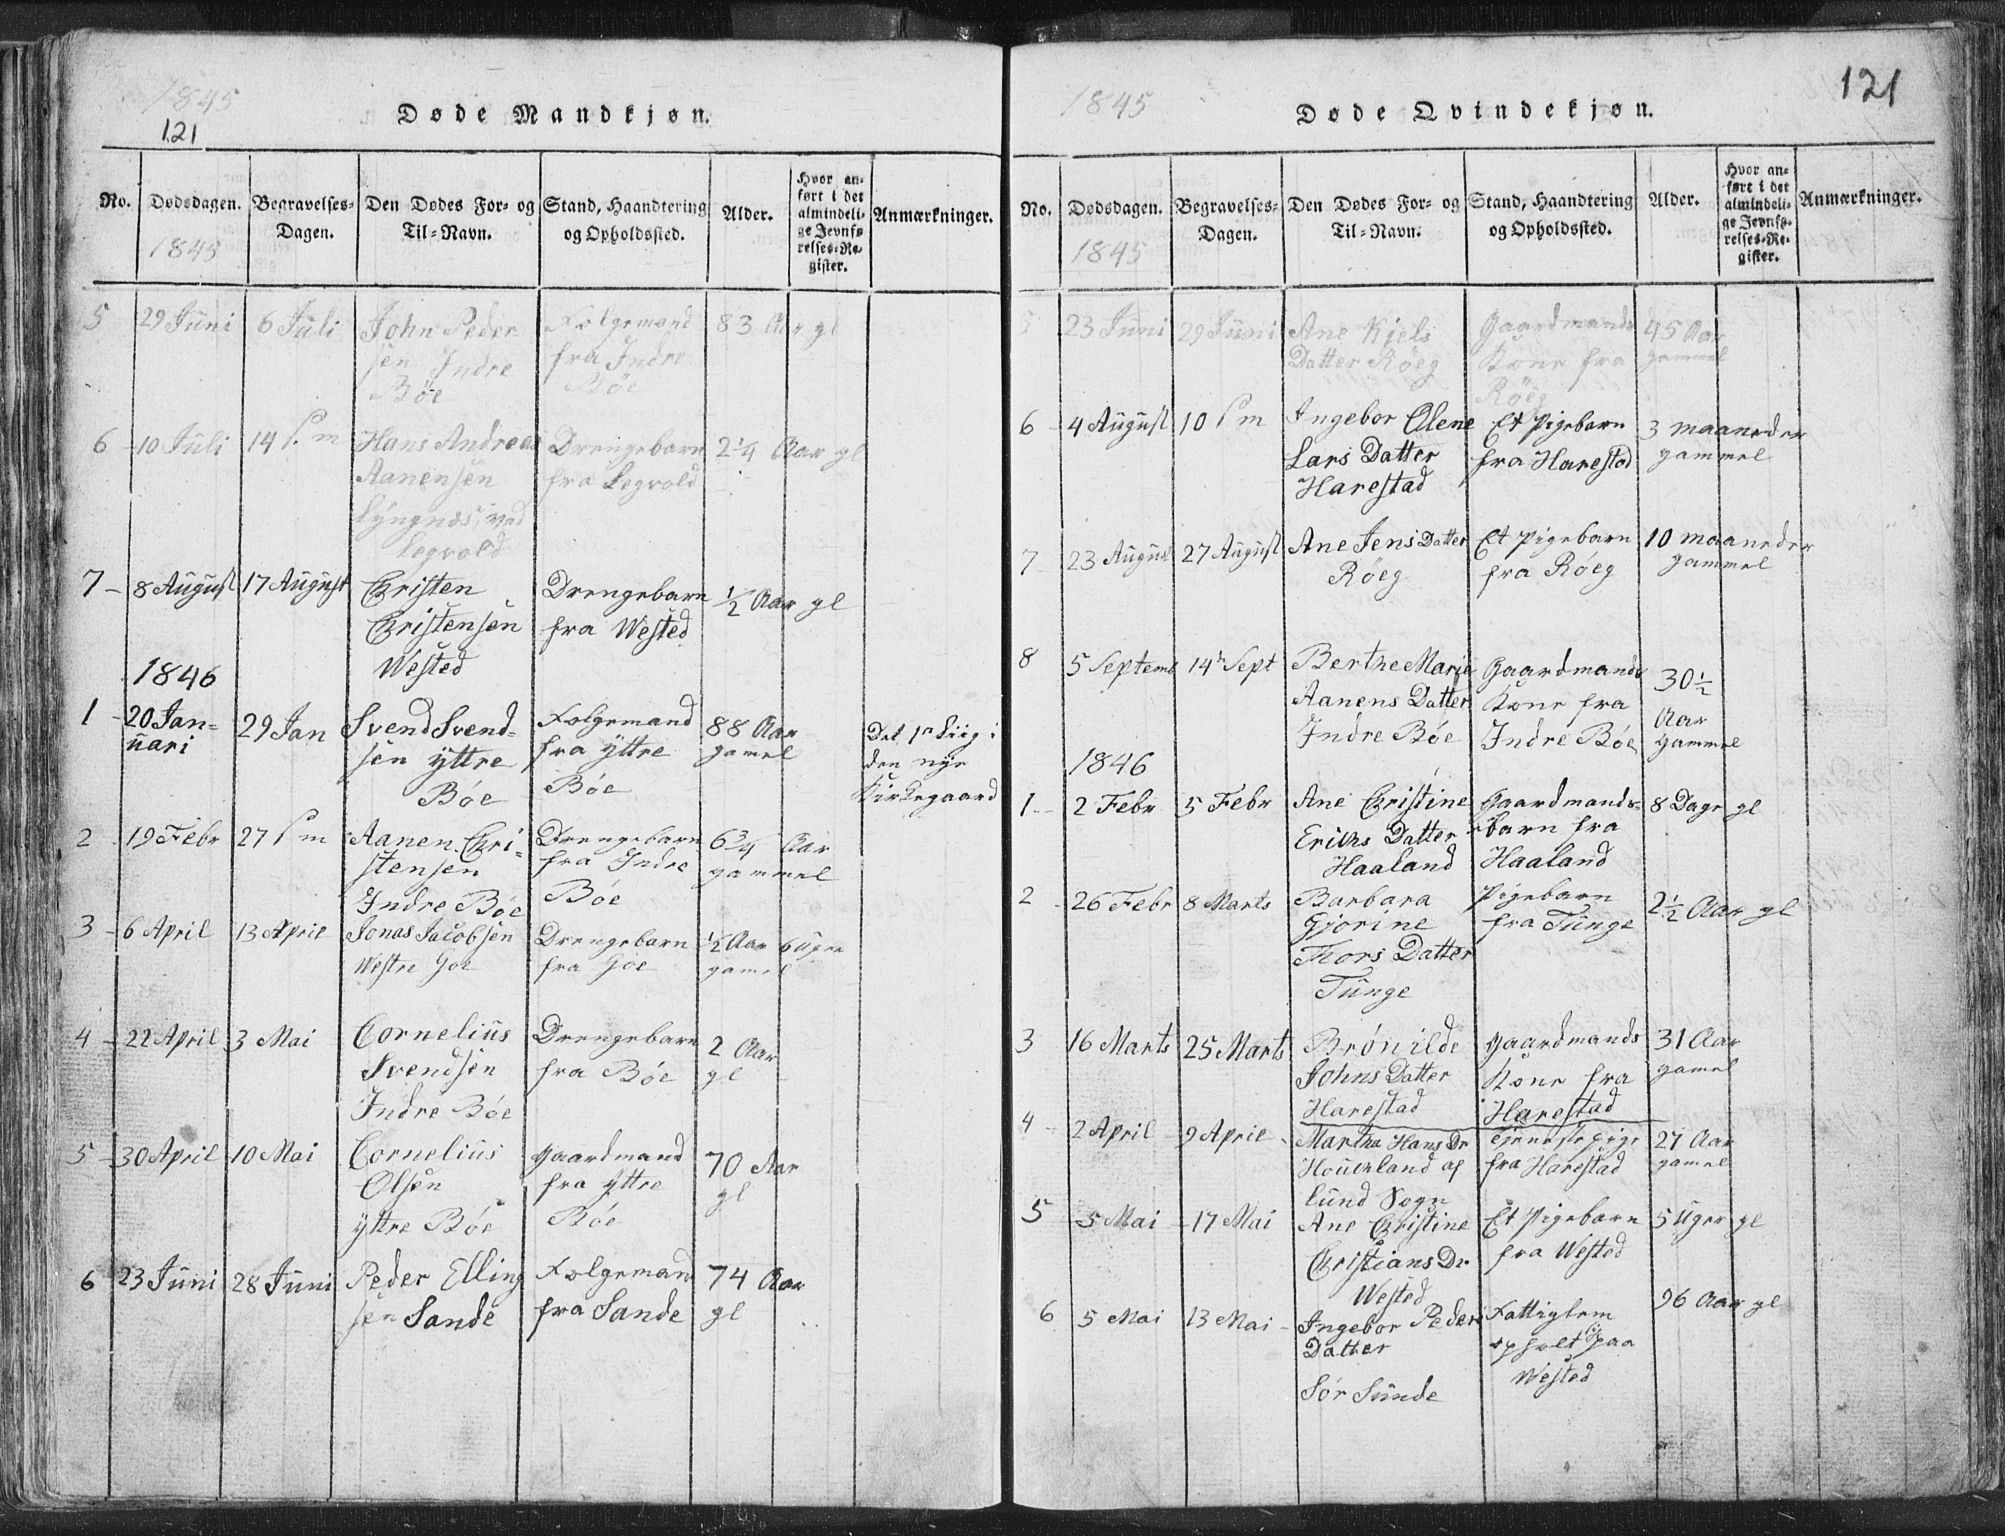 1845
121
Døde Mandkjøn.
No.
Dødsdagen.
1845
Begravelses-
Dagen.
Den Dødes For- og
Til-Navn.
Stand, Haandtering
og Opholdssted.
Alder.
Hvor an-
ført i det
almindeli-
ge Jevnfø
relses-Re-
gister.
Anmærkninger.
5 29 Juni 6 Juli John Peder Folgemand 83 Aar gl
sen Indre fra Indre
Bøe Bøe
6 10 Juli 14 s. m Hans Andreas Drengebarn 2 1/4 Aar gl
Aanensen fra Legvold
Lyngnes, ved
Legvold
7 - 8 August 17 August Christen Drengebarn 1/2 Aar gl
Christensen fra Wested
Wested
1846
1 - 20 Jan- 29 Jan Svend Svend- Folgemand 88 Aar Det 1ste Liig i
uari sen yttre fra yttre gamel den nye
Bøe Bøe Kirkegaard
2 - 19 Febr 27 s m Aanen Chri- Drengebarn 6 3/4 Aar
stensen fra Indre gammel
Indre Bøe Bøe
3 - 6 April 13 April Jonas Jacobsen Drengebarn 1/2 Aar 6 Uger
Westre Goe fra Goe gamel
4 - 22 April 3 Mai Cornelius Drengebarn 2 Aar
Svendsen fra Bøe gl
Indre Bøe
5 - 30 April 10 Mai Cornelius gaardmand 70 Aar
Olsen fra yttre gl
yttre Bøe Bøe
6 23 Juni 28 Juni Peder Elling Folgeman 74 Aar
sen Sande fra Sande gl
1845
121
Døde Qvindekjøn.
No.
Dødsdagen.
1845
Begravelses-
Dagen.
Den Dødes For- og
Til-Navn.
Stand, Haandtering
og Opholdssted.
Alder.
Hvor an-
ført i det
almindeli-
ge Jevnfø-
relses-Re-
gister.
Anmærkninger.
5 23 Juni 29 Juni Ane Kjels Gaardmands 45 Aar
Datter Røeg Kone fra gammel
Røeg
6 - 4 August 10 s m Ingebor Olene Et Pigebarn 3 maaneder
Lars Datter fra Harestad gammel
Harestad
7 - 23 August 27 August Ane Jens Datter Et Pigebarn 10 maaneder
Røeg fra Røeg gammel
8 5 Septemb 14 Sept Berthe Marie Gaardmands 30 1/2
Aanens Datter Kone fra Aar
Indre Bøe Indre Bøe gammel
1846
1 - 2 Febr 5 Febr Ane Christine Gaardmands- 8 Dage gl
Eriks Datter barn fra
Haaland Haaland
2 - 26 Febr 8 Marts Barbara Pigebarn 2 1/2 Aar gl
Gjorine fra Tunge
Thors Datter
Tunge
3 16 Marts 25 Marts Brønilde gaardmands 31 Aar
Johns Datter Kone fra gamel
Harestad Harestad
4 - 2 April 9 April - Martha Hans Dr Tjenestepige 27 Aar
Houerland af fra Harestad gamel
lund Sogn
5 - 5 Mai - 17 Mai Ane Christine Et Pigebarn 5 Uger gl
Christians Dr fra Wested
Wested
6 5 Mai 13 Mai - Ingebor Peders Fattiglem 96 Aar gl
Datter paa
Sør Sunde Wested